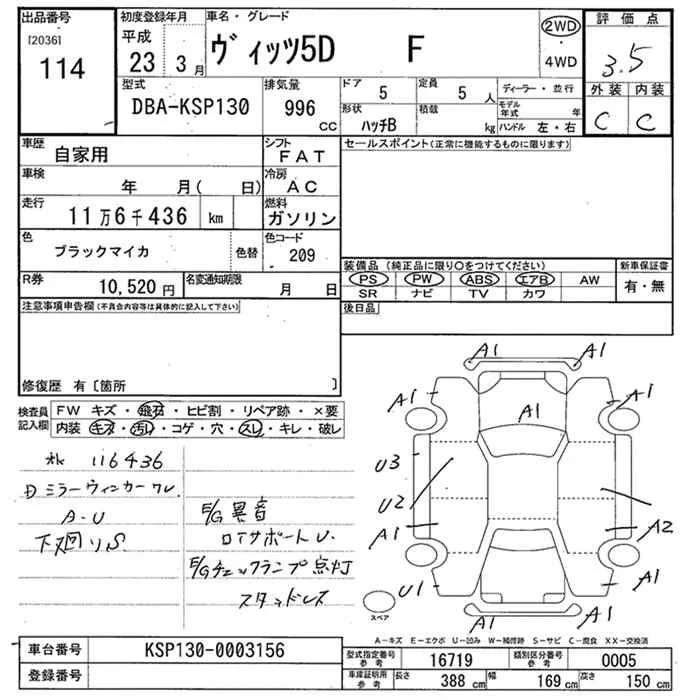 出品番号 初度登録年月 車名・グレード 評価点
[2036]
114
平成
23 3月
ヴィッツ5D F
2WD
・
4WD
3.5
型式 排気量 ドア 定員 ディーラー・並行 外装 内装
DBA-KSP130 996 CC 5 5人
形状 積載 モデル年式 年
ハッチB kg ハンドル 左・右
C C
車歴 シフト セールスポイント(正常に機能するものに限ります)
自家用 FAT
車検 冷房
年 月( 日) AC
走行 燃料
11万6千436 km ガソリン
色 色コード
ブラックマイカ 色替 209
装備品(純正品に限り○をつけてください) 新車保証書
PS PW ABS エアB AW 有・無
SR ナビ TV カワ
R券 名変通知期限
10,520円 月 日
後日品
注意事項申告欄(不具合内容等は具体的に記入して下さい)
修復歴 有〔箇所 〕
検査員記入欄
FW キズ・飛石・ヒビ割・リペア跡・×要
内装 キズ・汚れ・コゲ・穴・スレ・キレ・破レ
116436
ミラーウィンカーワレ
A-U
下廻りS
E/G異音
ロアサポートU.
E/Gチェックランプ点灯
スタッドレス
A1 A1
A1 A1 A1
U3
U2
A1 A2
U1 A1
A1 A1
スペア
A-キズ E-エクボ U-凹み W-補修跡 S-サビ C-腐食 XX-交換済
車台番号 KSP130-0003156
登録番号
型式指定番号 参考 16719 類別区分番号 参考 0005
車庫証明用 参考 長さ 388 cm 幅 169 cm 高さ 150 cm